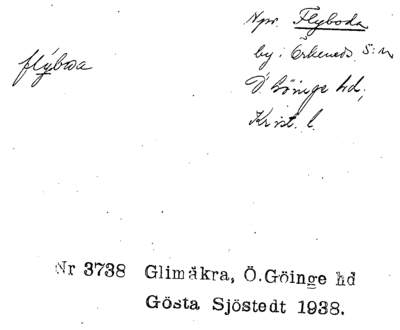 Npr. Flyboda
flýboa
by i Örkeneds s:n
Ö. Göinge hd,
Krist. l.
Nr 3738 Glimåkra, Ö.Göinge hd
Gösta Sjöstedt 1938.